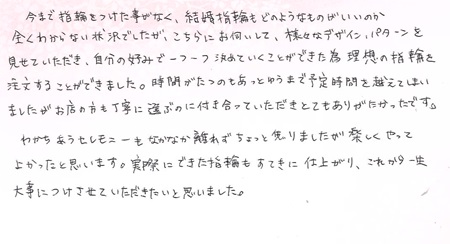 今まで指輪をつけた事がなく、結婚指輪もどのようなものがいいのか
全くわからない状況でしたが、こちらにお伺いして、様々なデザイン、パターンを
見せていただき、自分の好みで一つ一つ決めていくことができた為、理想の指輪を
注文することができました。時間がたつのもあっとゆうまで予定時間を越えてしまい
ましたがお店の方も丁寧に選ぶのに付き合っていただきとてもありがたかったです。
わかちあうセレモニーもなかなか離れずちょっと焦りましたが楽しくやって
よかったと思います。実際にできた指輪もすてきに仕上がり、これから一生
大事につけさせていただきたいと思いました。